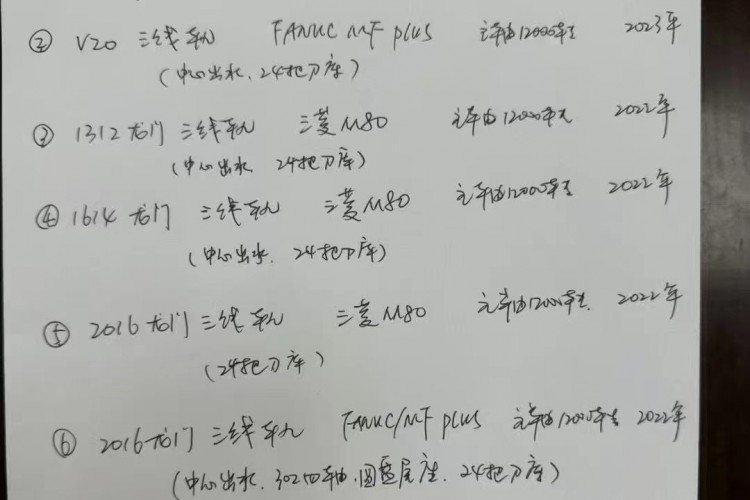 ② V20 三线轨 FANUC MF plus 主轴12000转 2023年
(中心出水、24把刀库)
③ 1312龙门 三线轨 三菱M80 主轴12000转 2022年
(中心出水 24把刀库)
④ 1614龙门 三线轨 三菱M80 主轴12000转 2022年
(中心出水、24把刀库)
⑤ 2016龙门 三线轨 三菱M80 主轴12000转 2022年
(24把刀库)
⑥ 2016龙门 三线轨 FANUC/MF plus 主轴12000转 2022年
(中心出水、302四轴、圆盘尾座、24把刀库)